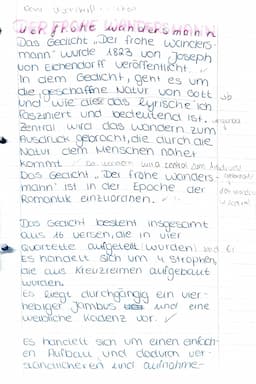 Der frohe Wandersmann
Das Gedicht „Der frohe Wanders-
mann" wurde 1823 von Joseph
von Eichendorff veröffentlicht.
In dem Gedicht, geht es um
die geschaffne Natur von Gott
und wie dies das lyrische Ich
fasziniert und bedeutend ist.
Zentral wird das wandern zum
Ausdruck gebracht, die durch die
Natur dem Menschen näher
kommt.
Das Gedicht „Der frohe Wanders-
mann" ist in der Epoche der
Romantik einzuordnen.
Das Gedicht besteht insgesamt
aus 16 Versen, die in vier
Quartette aufgeteilt wurden
Es handelt sich um 4 Strophen,
die aus Kreuzreimen aufgebaut
wurden.
Es liegt durchgängig ein vier-
hebiger Jambus und eine
weibliche Kadenz vor.
Es handelt sich um einen einfach-
en Aufbau und dadurch ver-
ständlicheren und aufnahme-